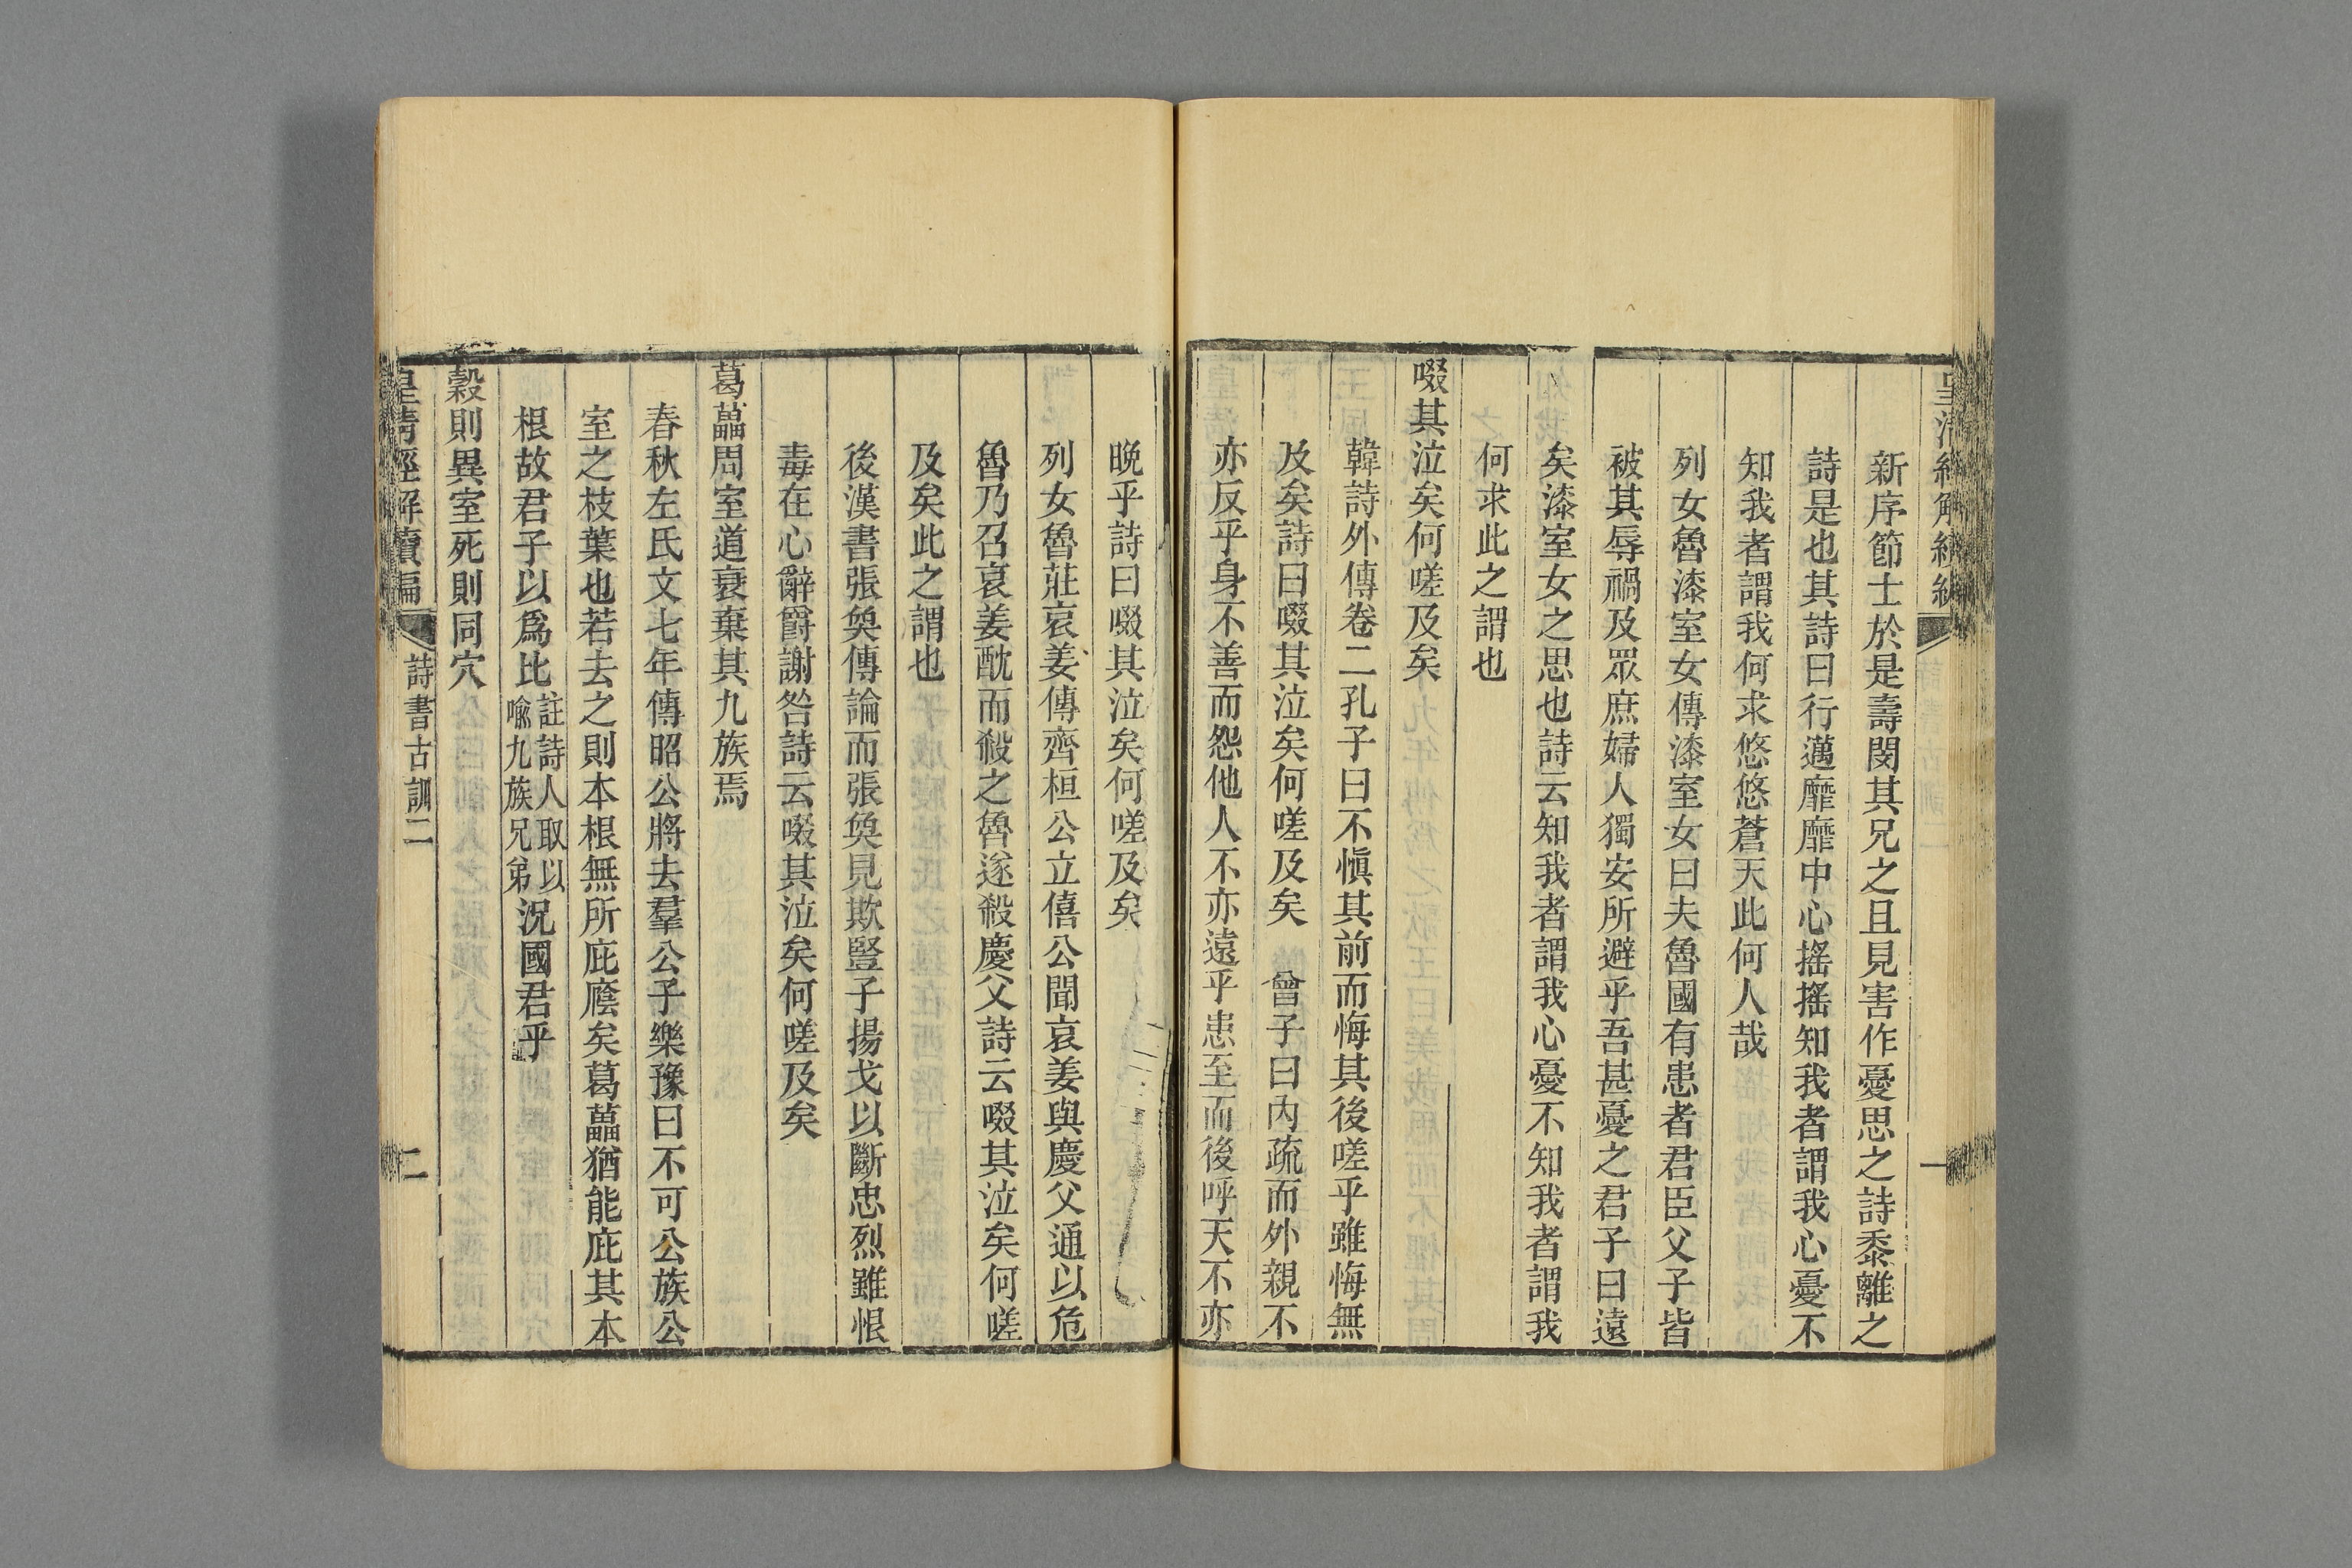 新序節士於是壽閔其兄之且見害作憂思之詩黍離之
詩是也其詩曰行邁靡靡中心搖搖知我者謂我心憂不
知我者謂我何求悠悠蒼天此何人哉
列女魯漆室女傳漆室女曰夫魯國有患者君臣父子皆
被其辱禍及眾庶婦人獨安所避乎吾甚憂之君子曰遠
矣漆室女之思也詩云知我者謂我心憂不知我者謂我
何求此之謂也
啜其泣矣何嗟及矣
韓詩外傳卷二孔子曰不愼其前而悔其後嗟乎雖悔無
及矣詩曰啜其泣矣何嗟及矣　曾子曰內疏而外親不
亦反乎身不善而怨他人不亦遠乎患至而後呼天不亦
晚乎詩曰啜其泣矣何嗟及矣
列女魯莊哀姜傳齊桓公立僖公聞哀姜與慶父通以危
魯乃召哀姜酖而殺之魯遂殺慶父詩云啜其泣矣何嗟
及矣此之謂也
後漢書張奐傳論而張奐見欺豎子揚戈以斷忠烈雖恨
毒在心辭爵謝咎詩云啜其泣矣何嗟及矣
葛藟周室道衰棄其九族焉
春秋左氏文七年傳昭公將去羣公子樂豫曰不可公族公
室之枝葉也若去之則本根無所庇廕矣葛藟猶能庇其本
根故君子以爲比註詩人取以喩九族兄弟況國君乎
穀則異室死則同穴
皇清經解續編
詩書古訓二
二